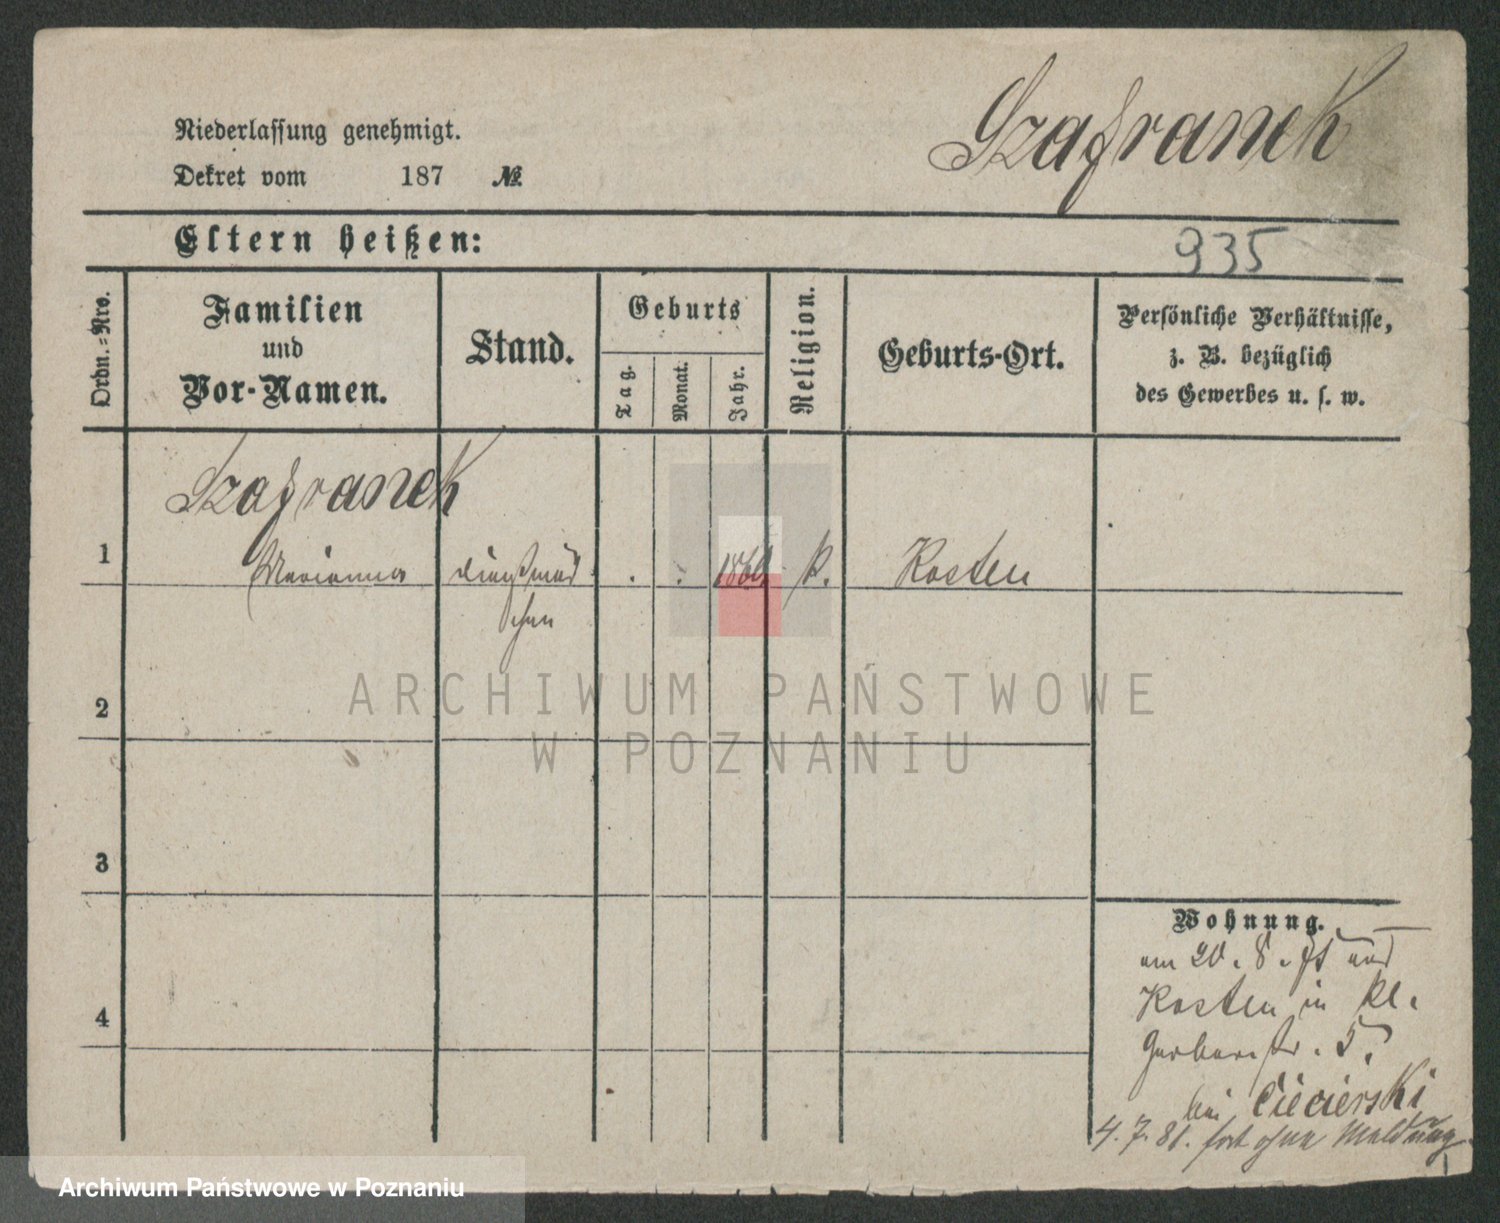 Szafranek
Niederlassung genehmigt.
Dekret vom 187 №
Eltern heißen:
935
Ordn.=Nro.
Familien
und
Vor-Namen.
Stand.
Geburts
Tag.
Monat.
Jahr.
Religion.
Geburts-Ort.
Persönliche Verhältnisse,
z. B. bezüglich
des Gewerbes u. s. w.
Szafranek
1 Marianna dienstmäd . . k. Kosten
chen
2
3
4
Wohnung.
am 20. 8. aus
Kosten in kl.
Gerberstr. 5.
bei Ciecierski
4. 7. 81. fort ohne Meldung
ARCHIWUM PAŃSTWOWE
W POZNANIU
Archiwum Państwowe w Poznaniu